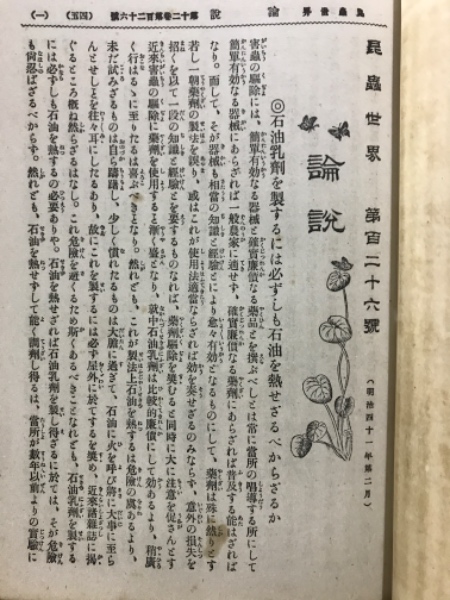 昆蟲世界 第百二十六號 (明治四十一年第二月)
論說
◎石油乳劑を製するには必ずしも石油を熱せざるべからざるか
害蟲の驅除には、簡單有効なる器械と確實廉價なる藥品とを撰ぶべしとは常に當所の唱導する所にして
簡單有効なる器械にあらざれば一般農家に適せず、確實廉價なる藥劑にあらざれば普及する能はざれば
なり。而して、そが器械も相當の知識と經驗とにより愈々有効となるものにして、藥劑は殊に然りとす
若し一朝藥劑の製法を誤り、或はこれが使用法適當ならざれば効を奏せざるのみならず、意外の損失を
招くを以て一段の知識と經驗とを要するものなれば、藥劑驅除を奬むると同時に大に注意を促さんとす
近來害蟲の驅除に藥劑を使用すると漸く盛となり、就中石油乳劑は比較的廉價にして効あるより、稍廣
く行はるゝに至りたるは喜ぶべきとなり。然れども、これが製法上石油を熱するは危險の虞あるより、
未だ試みざるものは自ら躊躇し、少しく慣れたるものは大膽に過ぎて、石油に火を呼び將に大事に至ら
んとせしとを往々耳にしたるあり、故にこれを製するには必ず屋外に於てするを奬め、近來諸雜誌に揭
ぐるところ概ね然らざるはなし。これ危險を避くるため斯くあるべきことなれども、石油乳劑を製する
には必ずしも石油を熱するの必要ありや。石油を熱せざれば石油乳劑を製し得ざるに於ては、そが危險
も尙忍ばざるべからず。然れども、石油を熱せずして能く調劑し得るは、當所が數年以前よりの實驗に
昆蟲世界 論說 第十二卷第百二十六號 (四五) (一)